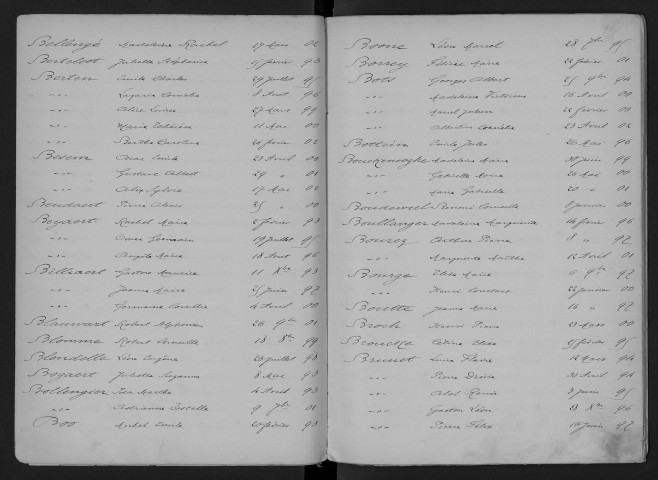 Bellengé Madeleine Rachel 17 Mars 02
Berteloot Juliette Stéphanie 15 février 93
Berton Emile Charles 29 Juillet 95
-"- Lazarie Cornélie 8 Août 96
-"- Alice Louise 27 Mars 99
-"- Marie Catherine 11 Mai 00
-"- Berthe Caroline 20 février 02
Besem Omer Emile 23 Avril 00
-"- Gustave Albert 29 " 01
-"- Alix Sylvie 17 Mai 02
Beudaert Pierre Alexis 25 " 00
Beyaert Rachel Marie 2 février 93
-"- Omer Germain 19 Juillet 95
-"- Angèle Marie 18 Août 96
Billiaert Gaston Maurice 11 Xbre 93
-"- Jeanne Marie 25 Juin 97
-"- Germaine Cornélie 4 Avril 00
Blanvart Robert Alphonse 26 9bre 01
Blomme Robert Corneille 18 8bre 99
Blondelle Léon Eugène 20 Juillet 98
Bogaert Juliette Suzanne 8 Mai 93
Bollengier Ida Marthe 4 Avril 93
-"- Adrienne Camille 9 7bre 01
Boo Michel Emile 20 février 93
Boone Léon Marcel 28 7bre 95
Borrey Félicie Marie 22 février 01
Bots Georges Albert 25 9bre 94
-"- Madeleine Victorine 16 Avril 00
-"- Marcel Julien 22 février 00
-"- Albertine Cornélie 23 Avril 02
Botteins Emile Jules 26 Mai 96
Bouckenooghe Madeleine Marie 30 Juin 99
-"- Gabrielle Marie 26 Mai 00
-"- Marie Gabrielle 20 " 01
Boudewel Romain Corneille 8 Janvier 00
Boullanger Madeleine Marguerite 16 février 96
Bourey Arthur Pierre 8 " 97
-"- Marguerite Marthe 12 Avril 01
Bourge Elise Marie 6 9bre 97
-"- Henri Constant 23 Janvier 00
Boutte Jeanne Marie 16 " 97
Broch Henri Pierre 23 Mars 00
Brouckze Céline Elise 15 février 95
Brunet Louis Pierre 12 Mars 94
-"- Pierre Désiré 30 Avril 94
-"- Abel Remi 3 Janvier 95
-"- Gaston Léon 23 Xbre 96
-"- Pierre Félix 10 Janvier 97